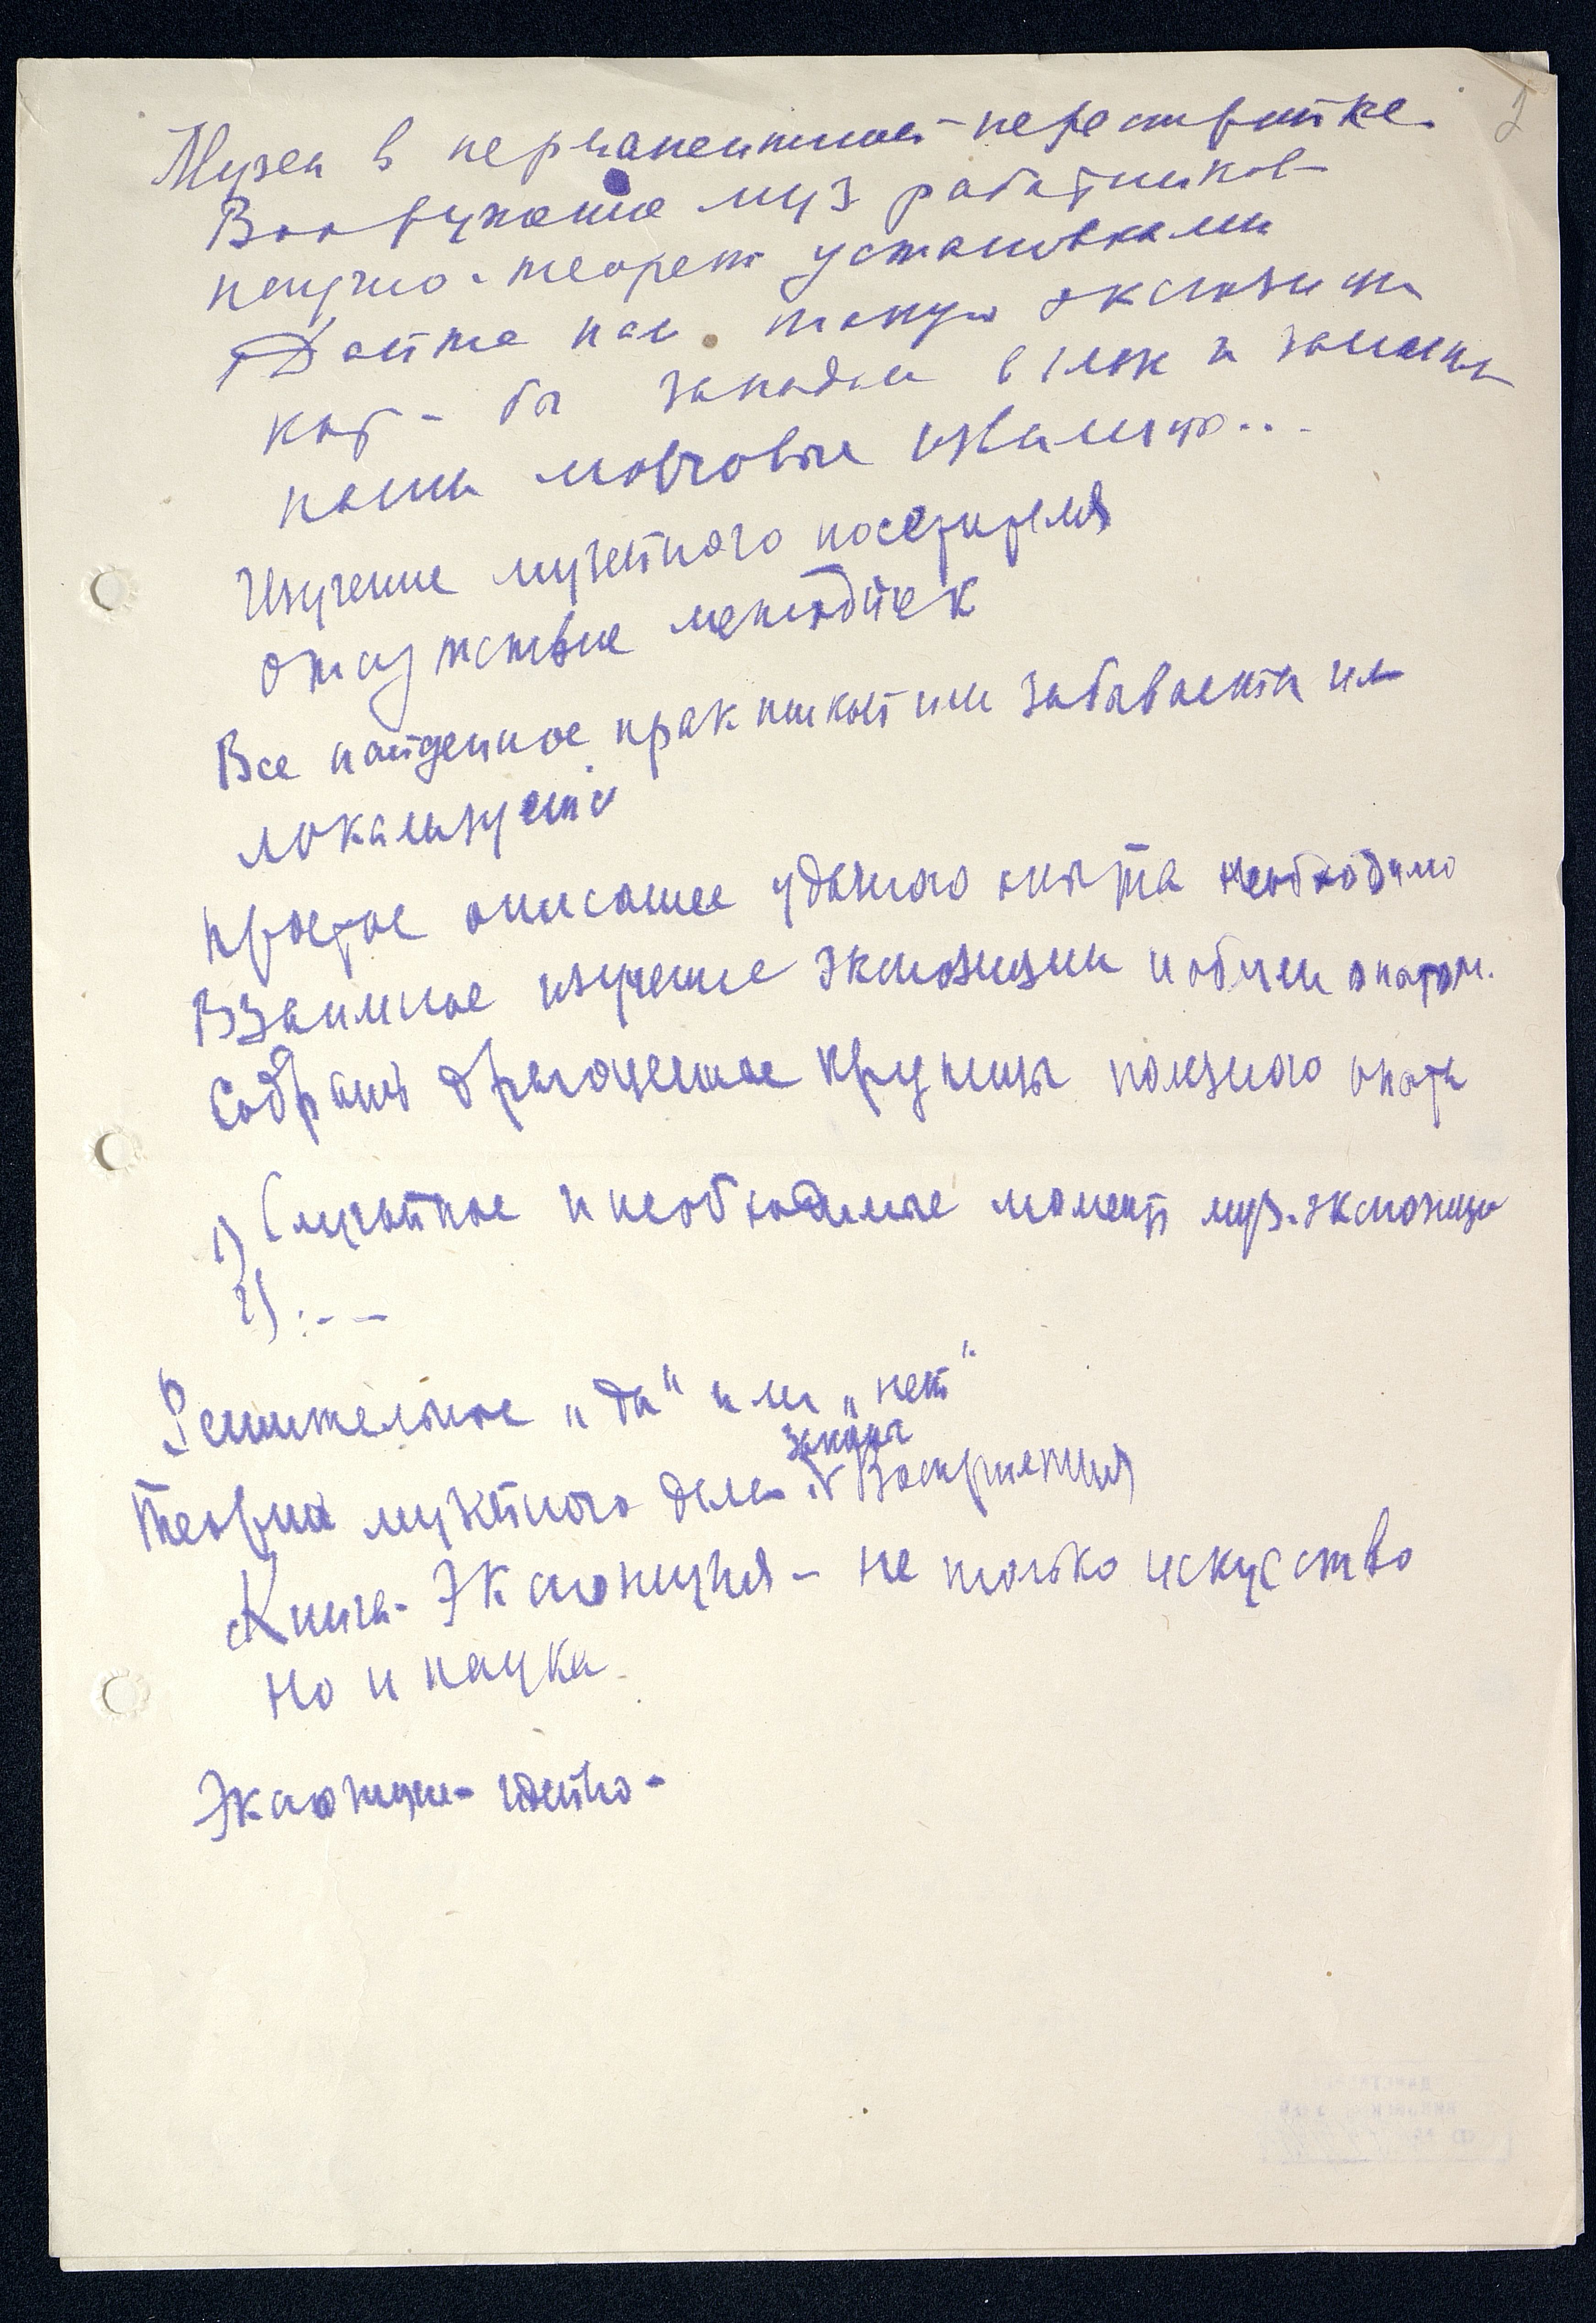 2
Музеи в перманентной перестройке.
Вооружение муз работников
научно-теорет установками
Дайте нам такую экспозицию
кот. бы западала в глаз и
наши мозговые извилины...
Изучение музейного посетителя
отсутствие методик
Все найденное практикой или забывается или
локализуется
простое описание удачного опыта необходимо
Взаимное изучение экспозиции и обмен опытом.
Собрать драгоценные крупицы полезного опыта
1) Случайное и необходимые моменты муз. экспозиции
2) . - –
Решительное „да" или „нет"
Теория музейного дела и законы Восприятия
Книга - Экспозиция - не только искусство
но и наука
Экспозиция - идейно -